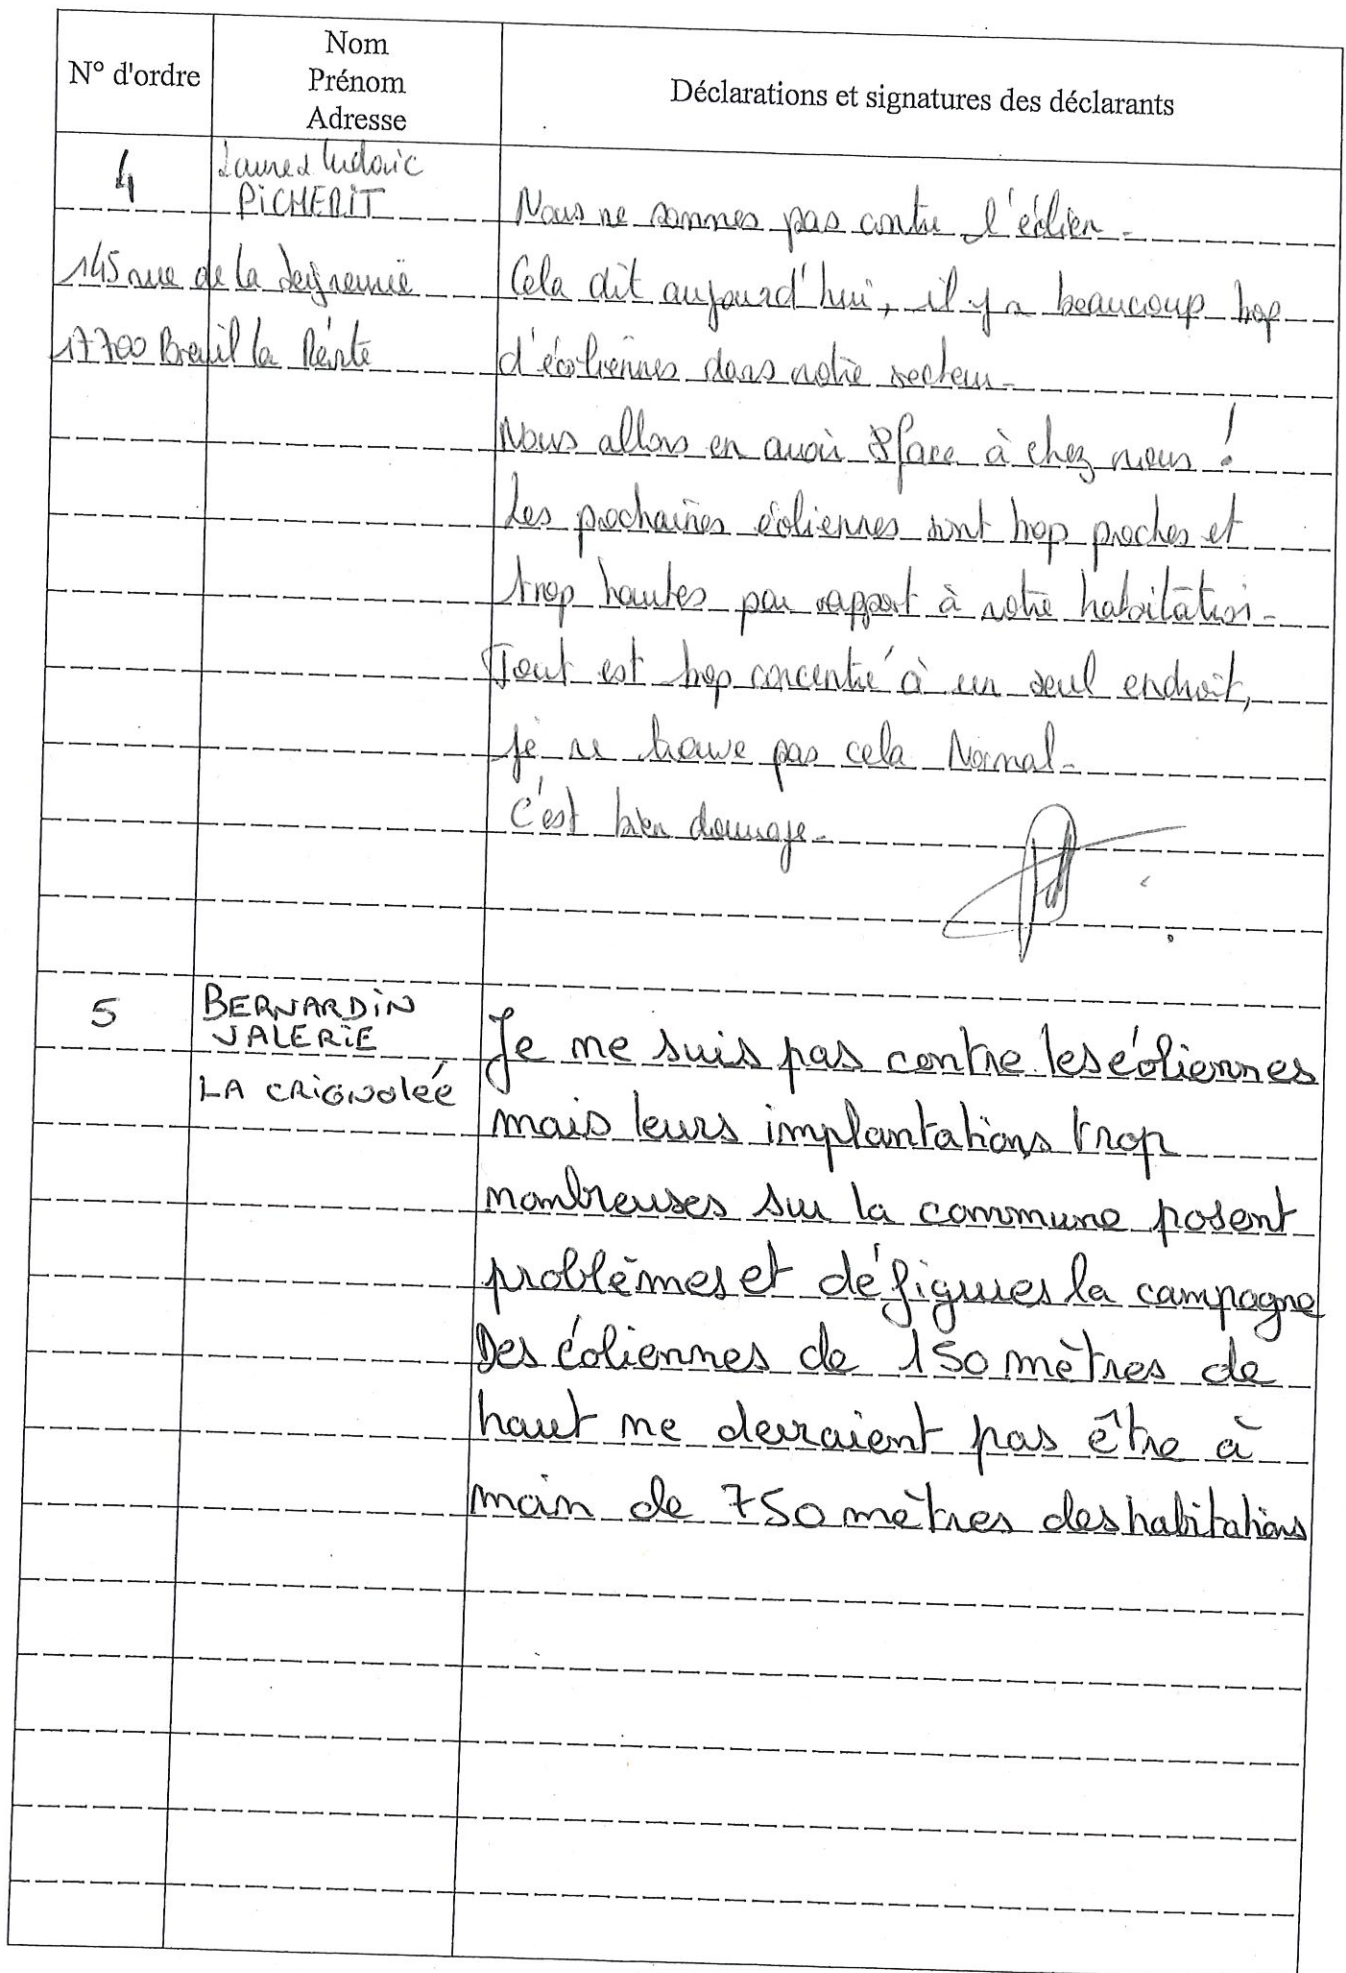 N° d'ordre
Nom
Prénom
Adresse
Déclarations et signatures des déclarants
4
Ludovic
PiCHERiT
145 rue de la
17700 Breuil la Réorte
Nous ne sommes pas contre l'éolien.
Cela dit aujourd'hui, il y a beaucoup trop
d'éoliennes dans notre secteur.
Nous allons en avoir 8 face à chez nous !
Les prochaines éoliennes sont trop proches et
trop hautes par rapport à notre habitation.
Tout est trop concentré à un seul endroit,
je ne trouve pas cela Normal.
C'est bien dommage.
5
BERNARDiN
VALERiE
LA CRiGNOLéE
Je ne suis pas contre les éoliennes
mais leurs implantations trop
nombreuses sur la commune posent
problèmes et défigures la campagne
Des éoliennes de 150 mètres de
haut ne devraient pas être à
moin de 750 mètres des habitations